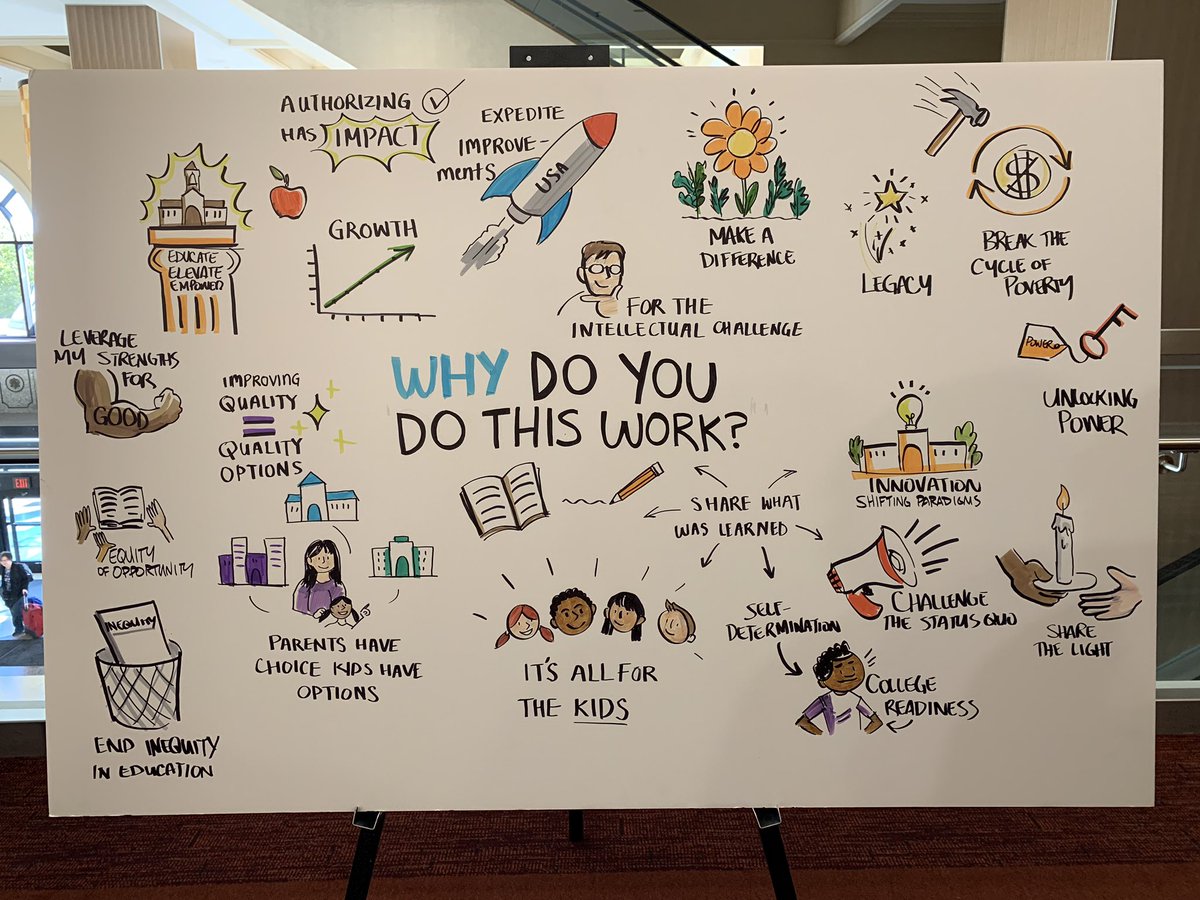 AUTHORIZING
HAS IMPACT
EXPEDITE
IMPROVE-
MENTS
USA
EDUCATE
ELEVATE
EMPOWER
GROWTH
MAKE A
DIFFERENCE
LEGACY
$
BREAK THE
CYCLE OF
POVERTY
FOR THE
INTELLECTUAL CHALLENGE
LEVERAGE
MY STRENGTHS
FOR
GOOD
IMPROVING
QUALITY
=
QUALITY
OPTIONS
WHY DO YOU
DO THIS WORK?
POWER
UNLOCKING
POWER
INNOVATION
SHIFTING PARADIGMS
SHARE WHAT
WAS LEARNED
EQUITY
OF OPPORTUNITY
PARENTS HAVE
CHOICE KIDS HAVE
OPTIONS
IT'S ALL FOR
THE KIDS
SELF-
DETERMINATION
CHALLENGE
THE STATUS QUO
SHARE
THE LIGHT
COLLEGE
READINESS
INEQUITY
END INEQUITY
IN EDUCATION
EXIT